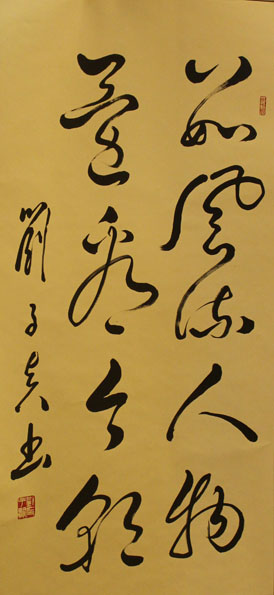 數風流人物
還看今朝
劉子真書